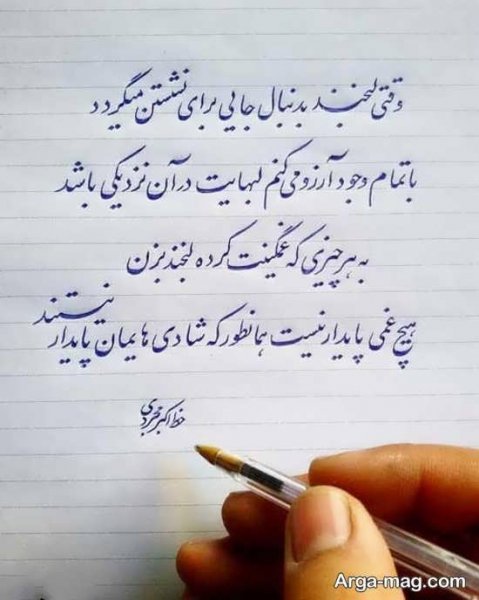 وقتی لبخند بدنبال جایی برای نشستن میگردد
با تمام وجود آرزو می کنم لبهایت در آن نزدیکی باشد
به هر چیزی که غمگینت کرده لبخند بزن
هیچ غمی پایدار نیست همانطور که شادی هایمان پایدار نیستند
خط اکبر
Arga-mag.com